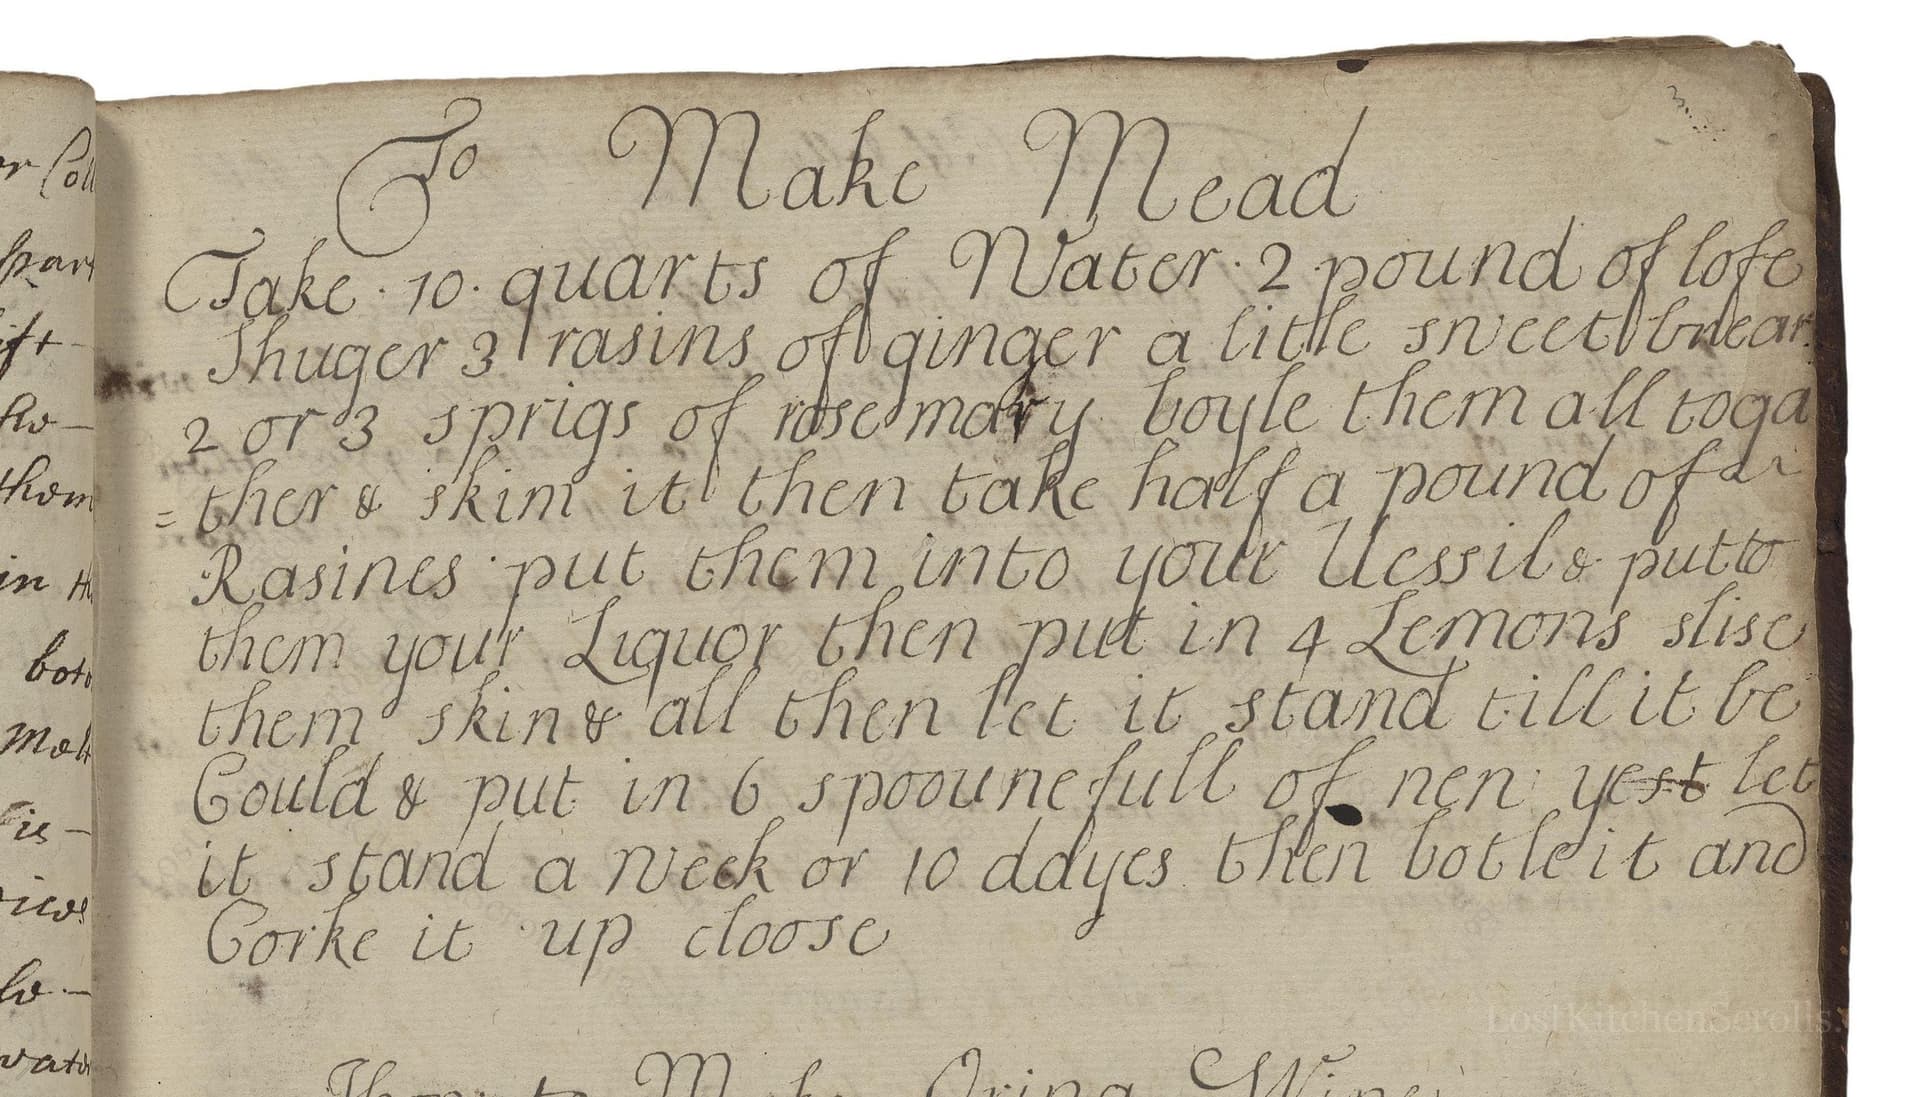 To Make Mead
Take · 10 · quarts of Water · 2 pound of lofe
Shuger 3 rasins of ginger a litle sweet brear
2 or 3 sprigs of rosemary boyle them all toga
= ther & skim it then take half a pound of
Rasines put them into your Uessil & put to
them your Liquor then put in 4 Lemons slise
them skin & all then let it stand till it be
Could & put in 6 spoounefull of new yest let
it stand a week or 10 ddyes then botle it and
Corke it up cloose
How to Make Oring Wine
LostKitchenScrolls.